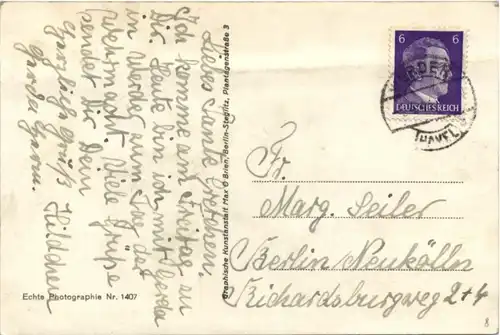 Liebes Tante Gretchen,
Ich komme am Freitag zu
Dir. Heute bin ich mit Gerda
in Werder zum Tag der
Wehrmacht. Viele Grüße
sendet Dir Dein
Hildchen
Herzlich Grüßt
Gerda
Graphische Kunstanstalt Max O'Brien/Berlin-Steglitz, Plantagenstraße 3
Echte Photographie Nr. 1407
6 6
DEUTSCHES REICH
(HAVEL)
Fr.
Marg. Seiler
Berlin Neukölln
Richardsburgweg 2+4